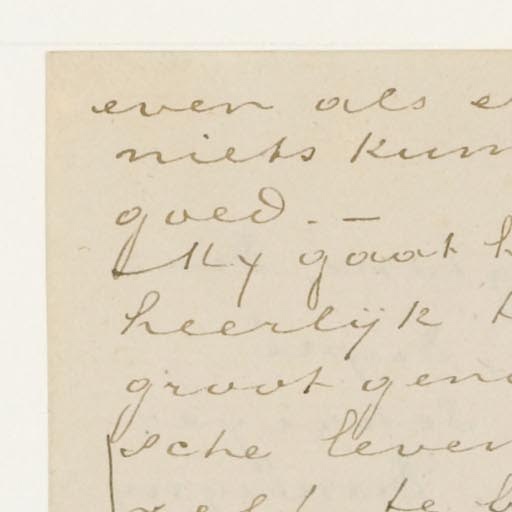 even als
niets kun
goed. —
Mij gaat
heerlijk
groot gen
sche leven
zelf te